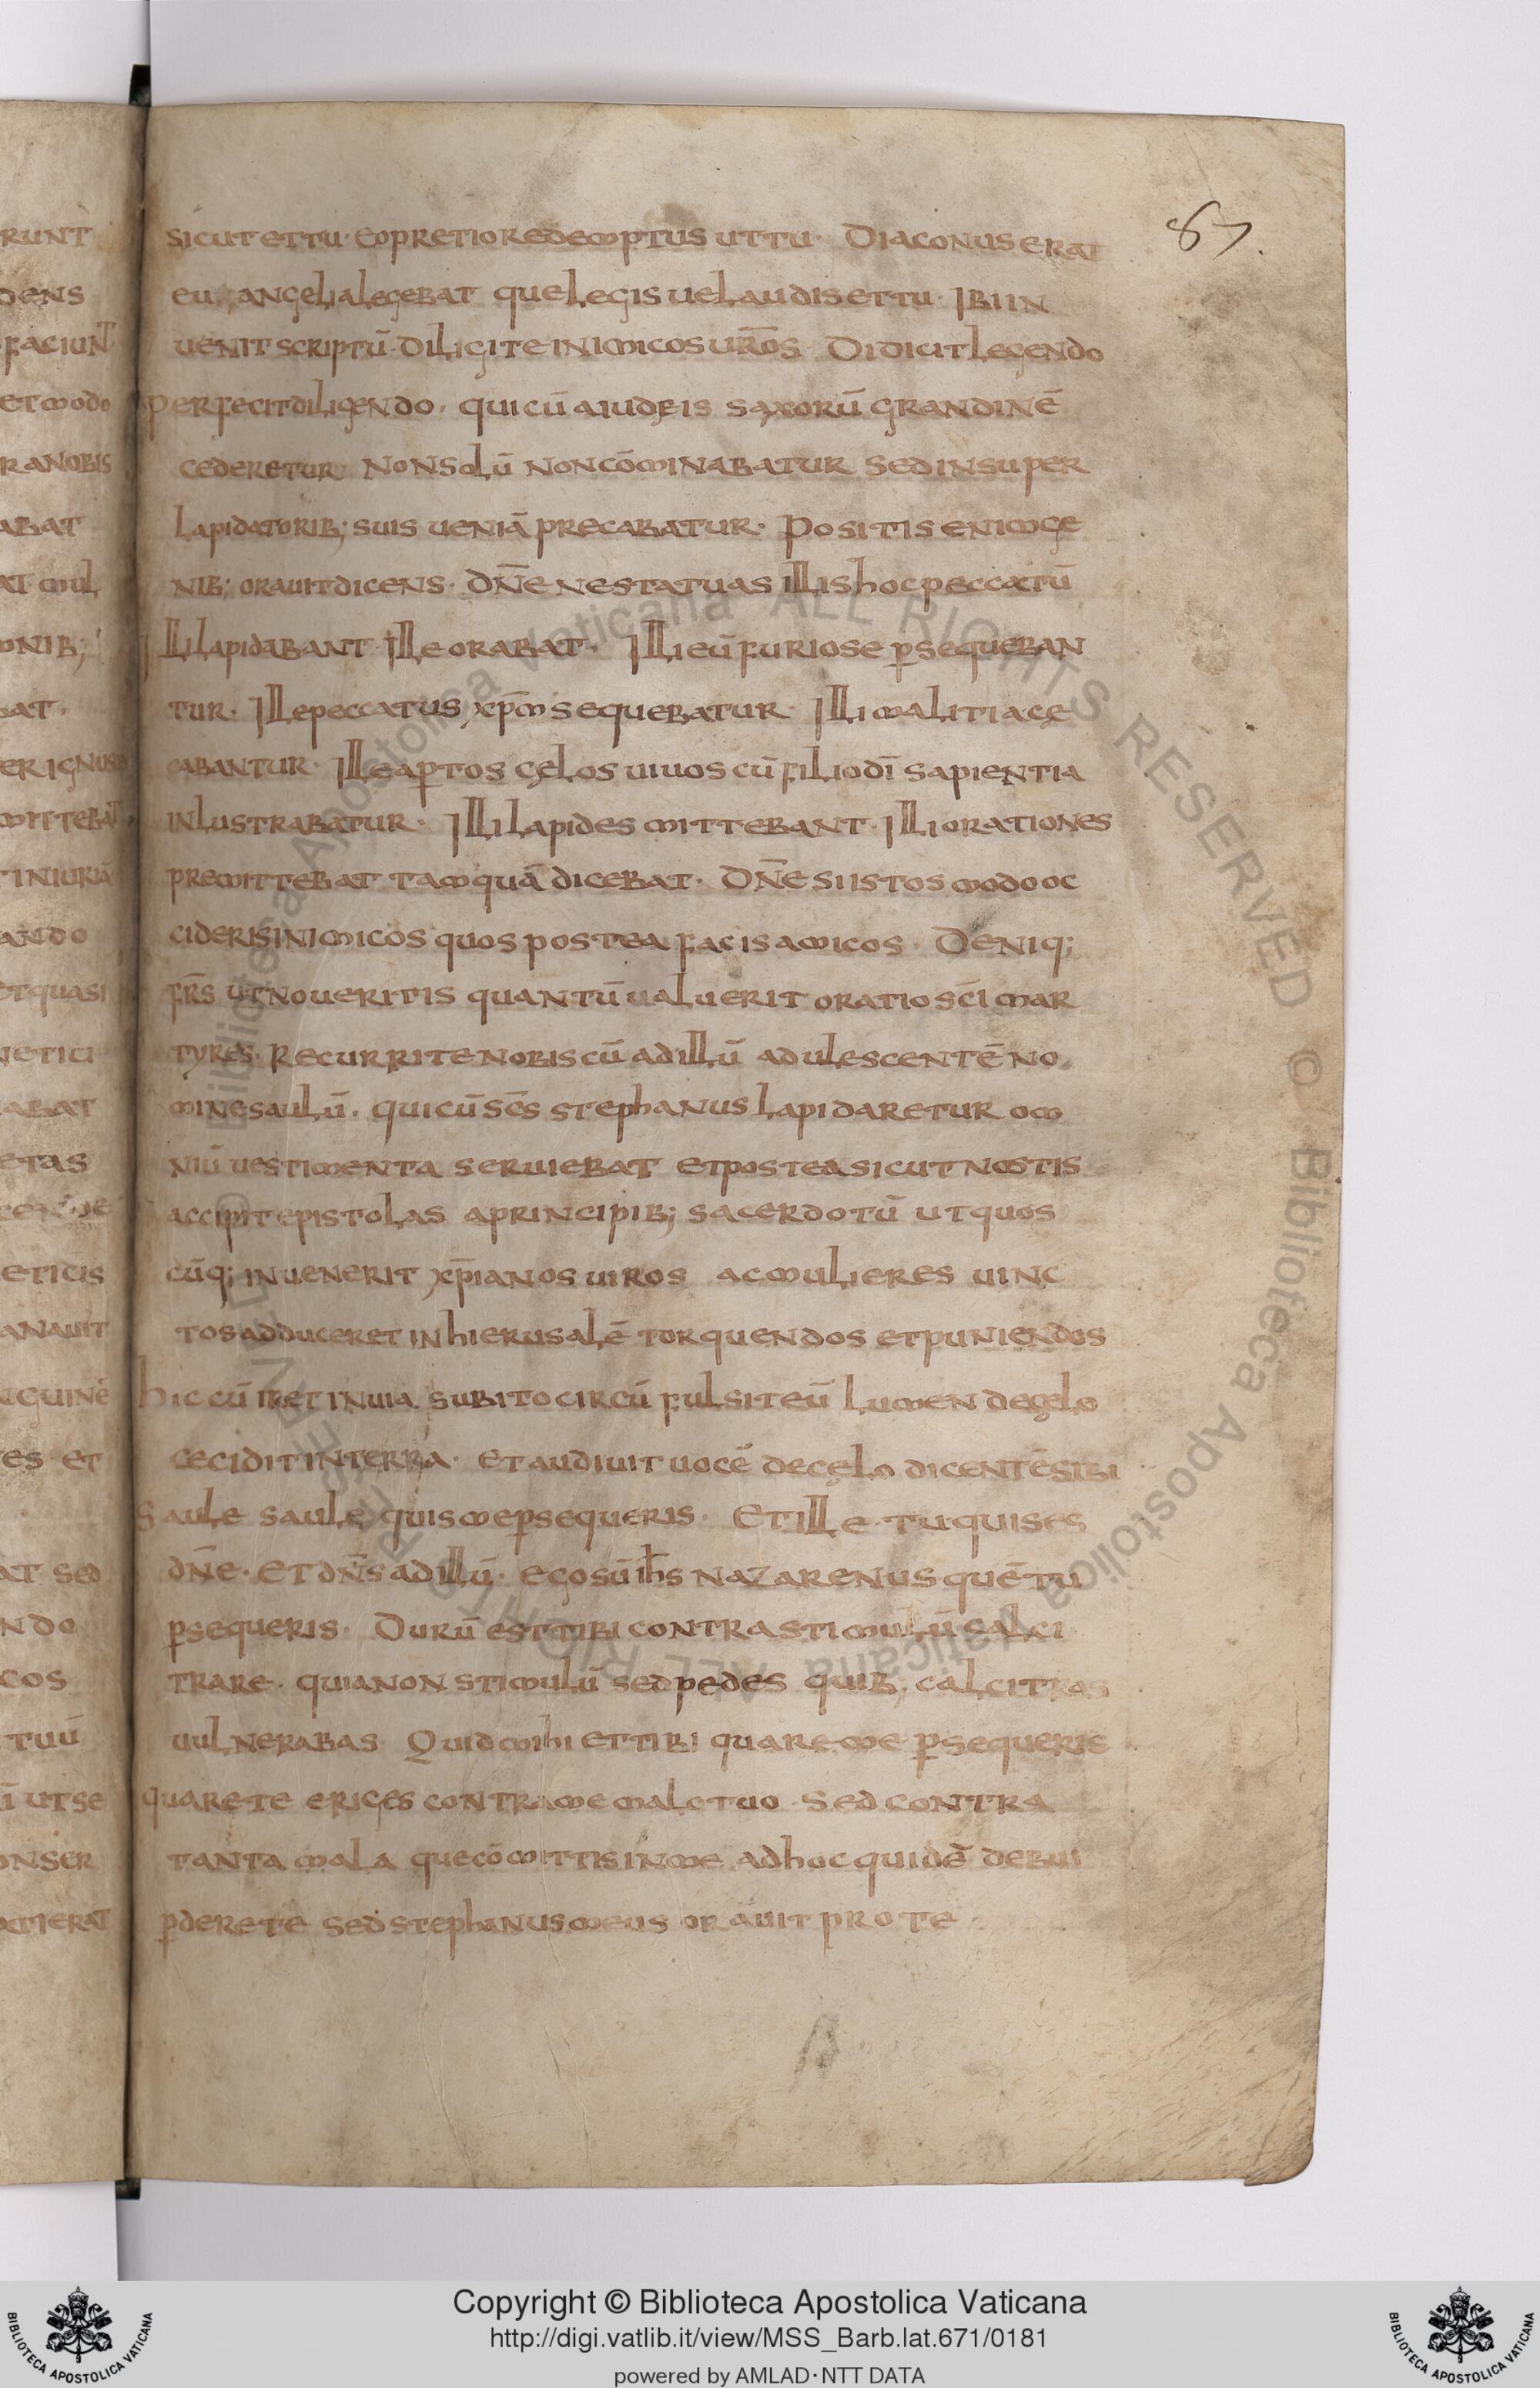 87.
sicut et tu· eo pretio redemptus ut tu· Diaconus erat
eu angelia legebat que legis uel audis et tu· Ibi in
uenit scriptū· Diligite inimicos ur̄os· Didicit legendo
perfecit diligendo· qui cū a iudęis saxorū grandinē
cederetur· Non solū non cōminabatur sed insuper
lapidatorib; suis ueniā precabatur· Positis enim ge
nib; orauit dicens· Dn̄e ne statuas illis hoc peccatū
Illi lapidabant· Ille orabat· Illi eū furiose p̱sequeban
tur· Ille peccatus xp̄m sequebatur· Illi malitia cę
cabantur· Ille ap̱tos cęlos uiuos cū filio dī sapientia
inlustrabatur· Illi lapides mittebant· Illi orationes
premittebat tamquā dicebat· Dn̄e si istos modo oc
cideris inimicos quos postea facis amicos· Deniq;
fr̄s ut noueritis quantū ualuerit oratio scī mar
tyres· Recurrite nobis cū ad illū adulescentē no
mine saulū· qui cū sc̄s stephanus lapidaretur om
niū uestimenta seruiebat et postea sicut nostis
accipit epistolas a principib; sacerdotū ut quos
cūq; inuenerit xp̄ianos uiros ac mulieres uinc
tos adduceret in hierusalē torquendos et puniendos
hic cū iret in uia subito circū fulsit eū lumen de cęlo
cecidit in terra· et audiuit uocē de cęlo dicentē sibi
Saule saule quis me p̱sequeris· Et ille· tu quis es
dn̄e· Et dn̄s ad illū· ego sū ih̄s nazarenus quē tu
p̱sequeris· Durū est tibi contra stimulū calci
trare· quia non stimulū sed pedes quib; calcitras
uulnerabas Quid mihi et tibi quare me p̱sequeris
quare te eriges contra me malo tuo· Sed contra
tanta mala que cōmittis in me ad hoc quidē debui
p̱dere te sed stephanus meus orauit pro te
Copyright © Biblioteca Apostolica Vaticana
http://digi.vatlib.it/view/MSS_Barb.lat.671/0181
powered by AMLAD·NTT DATA
BIBLIOTECA APOSTOLICA VATICANA
BIBLIOTECA APOSTOLICA VATICANA